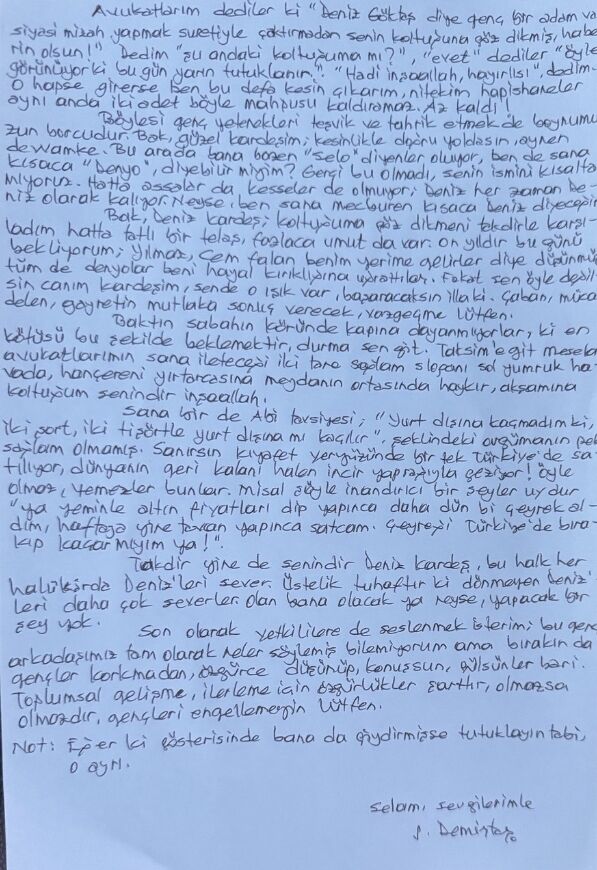 Avukatlarım dediler ki "Deniz Göktaş diye genç bir adam va
siyasi mizah yapmak suretiyle çaktırmadan senin koltuğuna göz dikmiş, habe
rin olsun!" Dedim "şu andaki koltuğuma mı?", "evet" dediler "öyle
görünüyor ki bu gün yarın tutuklanır." "Hadi inşaallah, hayırlısı" dedim.
O hapse girerse ben bu defa kesin çıkarım, nitekim hapishaneler
aynı anda iki adet böyle mahpusu kaldıramaz. Az kaldı!
Böylesi genç yetenekleri teşvik ve tahrik etmek de boynumu
zun borcudur. Bak, güzel kardeşim; kesinlikle doğru yoldasın, aynen
dewamke. Bu arada bana bazen "Selo" diyenler oluyor, ben de sana
kısaca "Denyo", diyebilir miyim? Gerçi bu olmadı, senin ismini kısalta
mıyoruz. Hatta assalar da kesseler de olmuyor; Deniz her zaman De-
niz olarak kalıyor. Neyse, ben sana mecburen kısaca Deniz diyeceğim
Bak, Deniz kardeş; koltuğuma göz dikmeni takdirle karşı-
ladım hatta tatlı bir telaş, fazlaca umut da var. On yıldır bu günü
bekliyorum; Yılmaz, Cem falan benim yerime gelirler diye düşünmü
tüm de denyolar beni hayal kırıklığına uğrattılar. Fakat sen öyle değil
sin canım kardeşim, sende o ışık var, başaracaksın illaki. Çaban, müca
delen, gayretin mutlaka sonuç verecek, vazgeçme lütfen.
Baktın sabahın köründe kapına dayanmıyorlar, ki en
kötüsü bu şekilde beklemektir, durma sen git. Taksim'e git mesela
avukatlarımın sana ileteceği iki tane sağlam sloganı sol yumruk ha-
vada, hançereni yırtarcasına meydanın ortasında haykır, akşamına
koltuğum senindir inşaallah.
Sana bir de Abi tavsiyesi; "Yurt dışına kaçmadım ki,
iki şort, iki tişörtle yurt dışına mı kaçılır". şeklindeki argümanın pek
sağlam olmamış. Sanırsın kıyafet yeryüzünde bir tek Türkiye'de sa-
tılıyor, dünyanın geri kalanı halen incir yaprağıyla geziyor! Öyle
olmaz, yemezler bunlar. Misal şöyle inandırıcı bir şeyler uydur
"ya yeminle altın fiyatları dip yapınca daha dün bi çeyrek al-
dım, haftaya yine tavan yapınca satcam. Çeyreği Türkiye'de bıra-
kıp kaçar mıyım ya!".
Takdir yine de senindir Deniz kardeş, bu halk her
halükârda Deniz'leri sever. Üstelik tuhaftır ki dönmeyen Deniz'
leri daha çok severler. Olan bana olacak ya neyse, yapacak bir
şey yok.
Son olarak yetkililere de seslenmek isterim; bu genç
arkadaşımız tam olarak neler söylemiş bilemiyorum ama bırakın da
gençler korkmadan, özgürce düşünüp, konuşsun, gülsünler bari.
Toplumsal gelişme, ilerleme için özgürlükler şarttır, olmazsa
olmazdır, gençleri engellemeyin lütfen.
Not: Eğer ki gösterisinde bana da giydirmişse tutuklayın tabi,
o ayrı.
Selam, sevgilerimle
S. Demirtaş